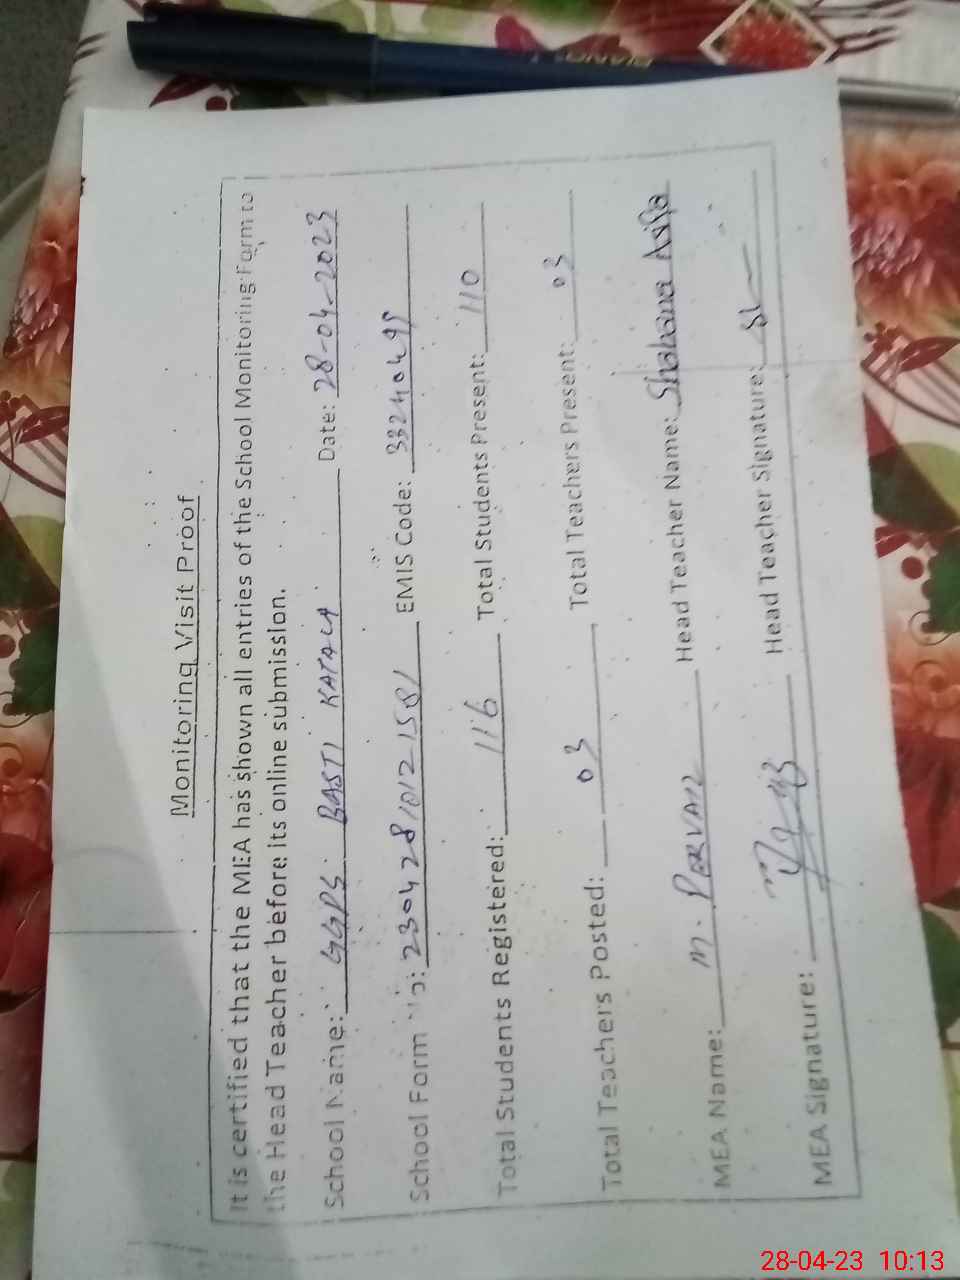 Monitoring Visit Proof
It is certified that the MEA has shown all entries of the School Monitoring Form to
the Head Teacher before its online submission.
School Name: GGPS BASTI KATALA Date: 28-04-2023
School Form No: 23042810121581 EMIS Code:
Total Students Registered: 116 Total Students Present: 110
Total Teachers Posted: 03 Total Teachers Present: 03
MEA Name: M. PERVAIZ Head Teacher Name: Shabana Asifa
MEA Signature: Head Teacher Signature:
28-04-23 10:13